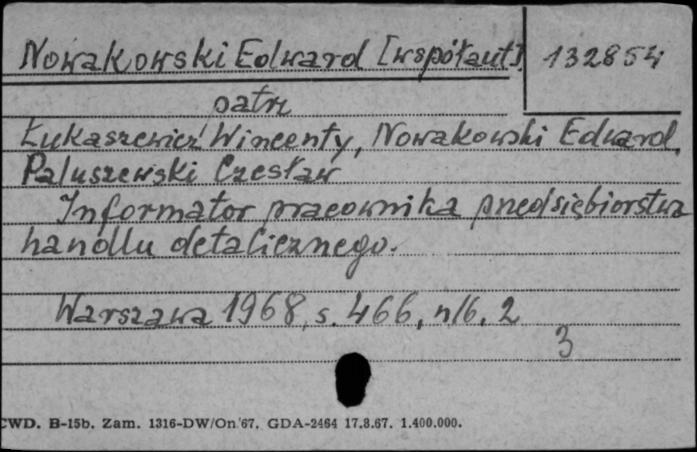 Nowakowski Edward [współaut]. 132854
patrz
Łukaszewicz Wincenty, Nowakowski Edward,
Paluszewski Czesław
Informator pracownika przedsiębiorstwa
handlu detalicznego.
Warszawa 1968, s. 466, nlb. 2
3
CWD. B-15b. Zam. 1316-DW/On/67. GDA-2464 17.8.67. 1.400.000.